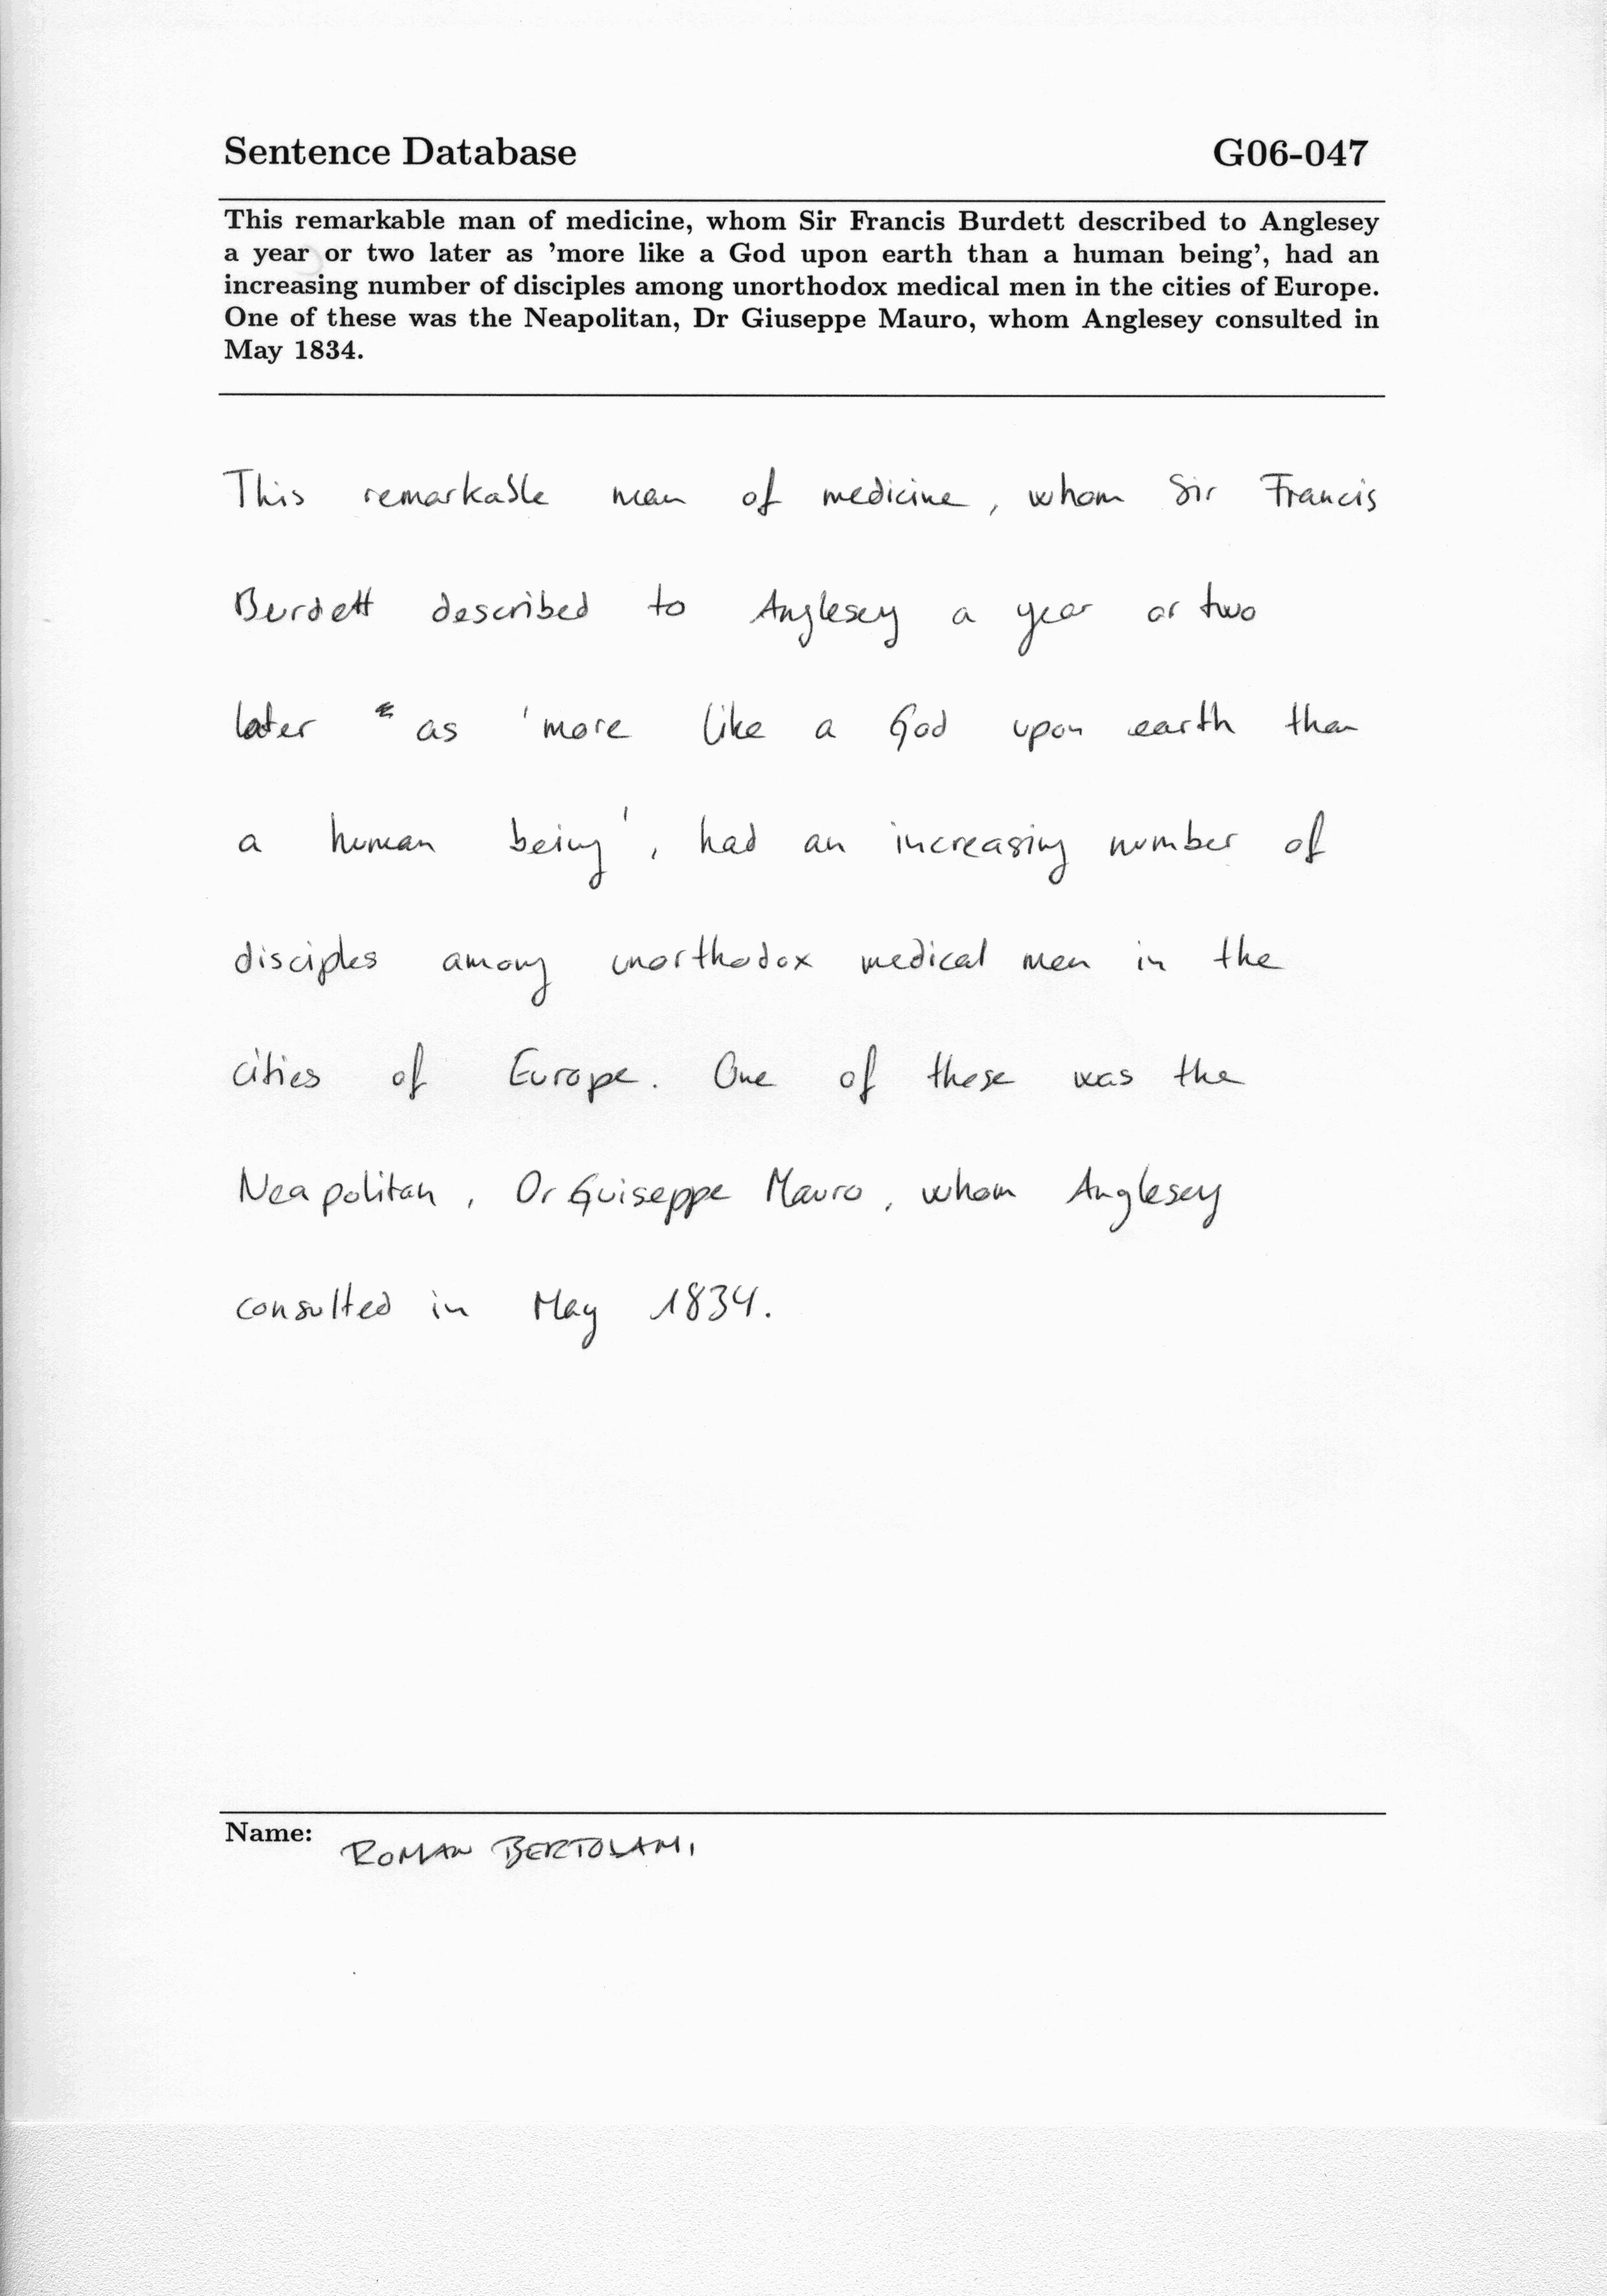 Sentence Database G06-047
This remarkable man of medicine, whom Sir Francis Burdett described to Anglesey
a year or two later as ’more like a God upon earth than a human being’, had an
increasing number of disciples among unorthodox medical men in the cities of Europe.
One of these was the Neapolitan, Dr Giuseppe Mauro, whom Anglesey consulted in
May 1834.
This remarkable man of medicine, whom Sir Francis
Burdett described to Anglesey a year or two
later as 'more like a God upon earth than
a human being', had an increasing number of
disciples among unorthodox medical men in the
cities of Europe. One of these was the
Neapolitan, Dr Guiseppe Mauro, whom Anglesey
consulted in May 1834.
Name: ROMAN BERTOLAMI